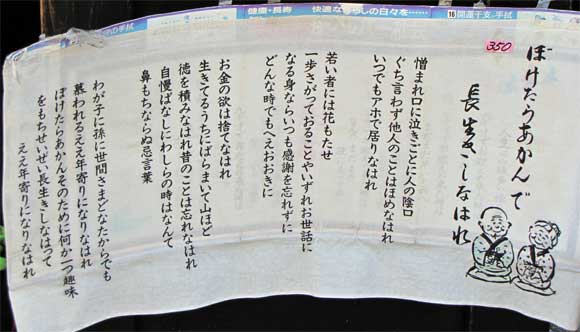 ぼけたらあかんで
長生きしなはれ
350
憎まれ口に泣きごとに人の陰口
ぐち言わず他人のことはほめなはれ
いつでもアホで居りなはれ
若い者には花もたせ
一歩さがっておることやいずれお世話に
なる身ならいつも感謝を忘れずに
どんな時でもへえおおきに
お金の欲は捨てなはれ
生きてるうちにばらまいて山ほど
徳を積みなはれ昔のことは忘れなはれ
自慢ばなしにわしらの時はなんて
鼻もちならぬ忌言葉
わが子に孫に世間さまどなたからでも
慕われるええ年寄りになりなはれ
ぼけたらあかんそのために何か一つ趣味
をもちせいぜい長生きしなはって
ええ年寄りになりなはれ
の手拭
健康・長寿
快適な
しの日々を……
16 開運干支・手拭